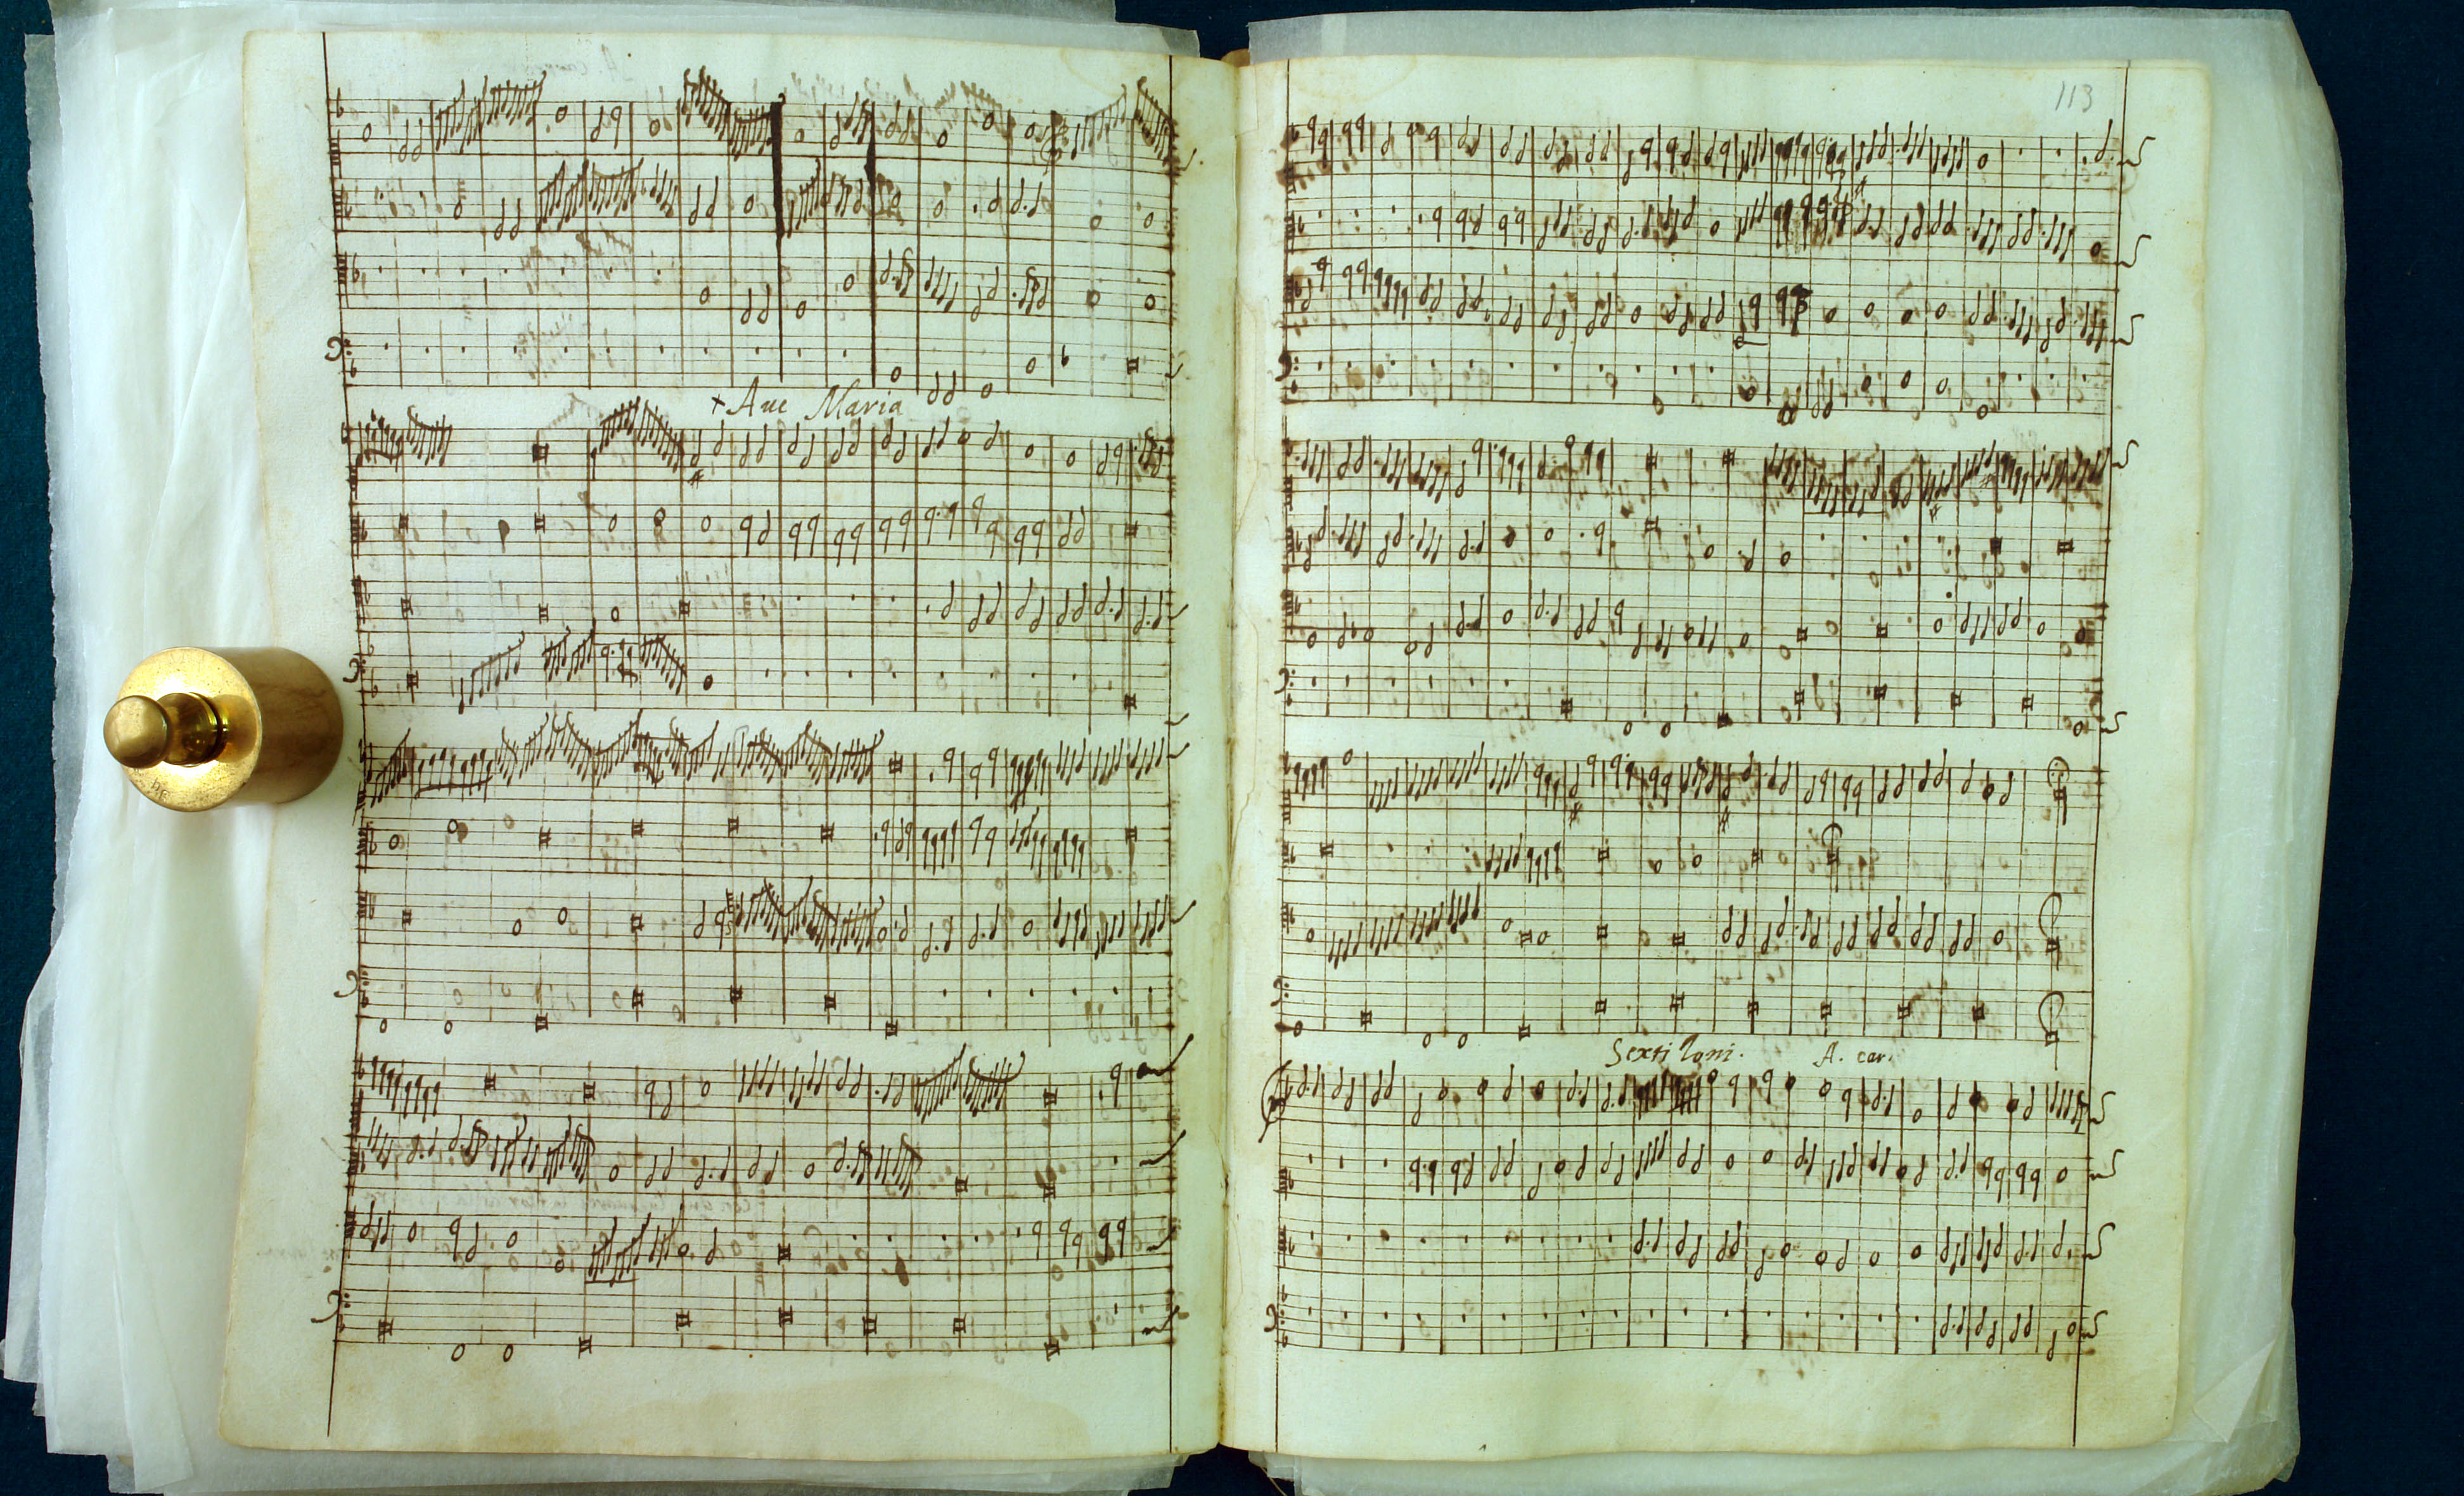 + Aue Maria
113
Sexti Toni. A. car.